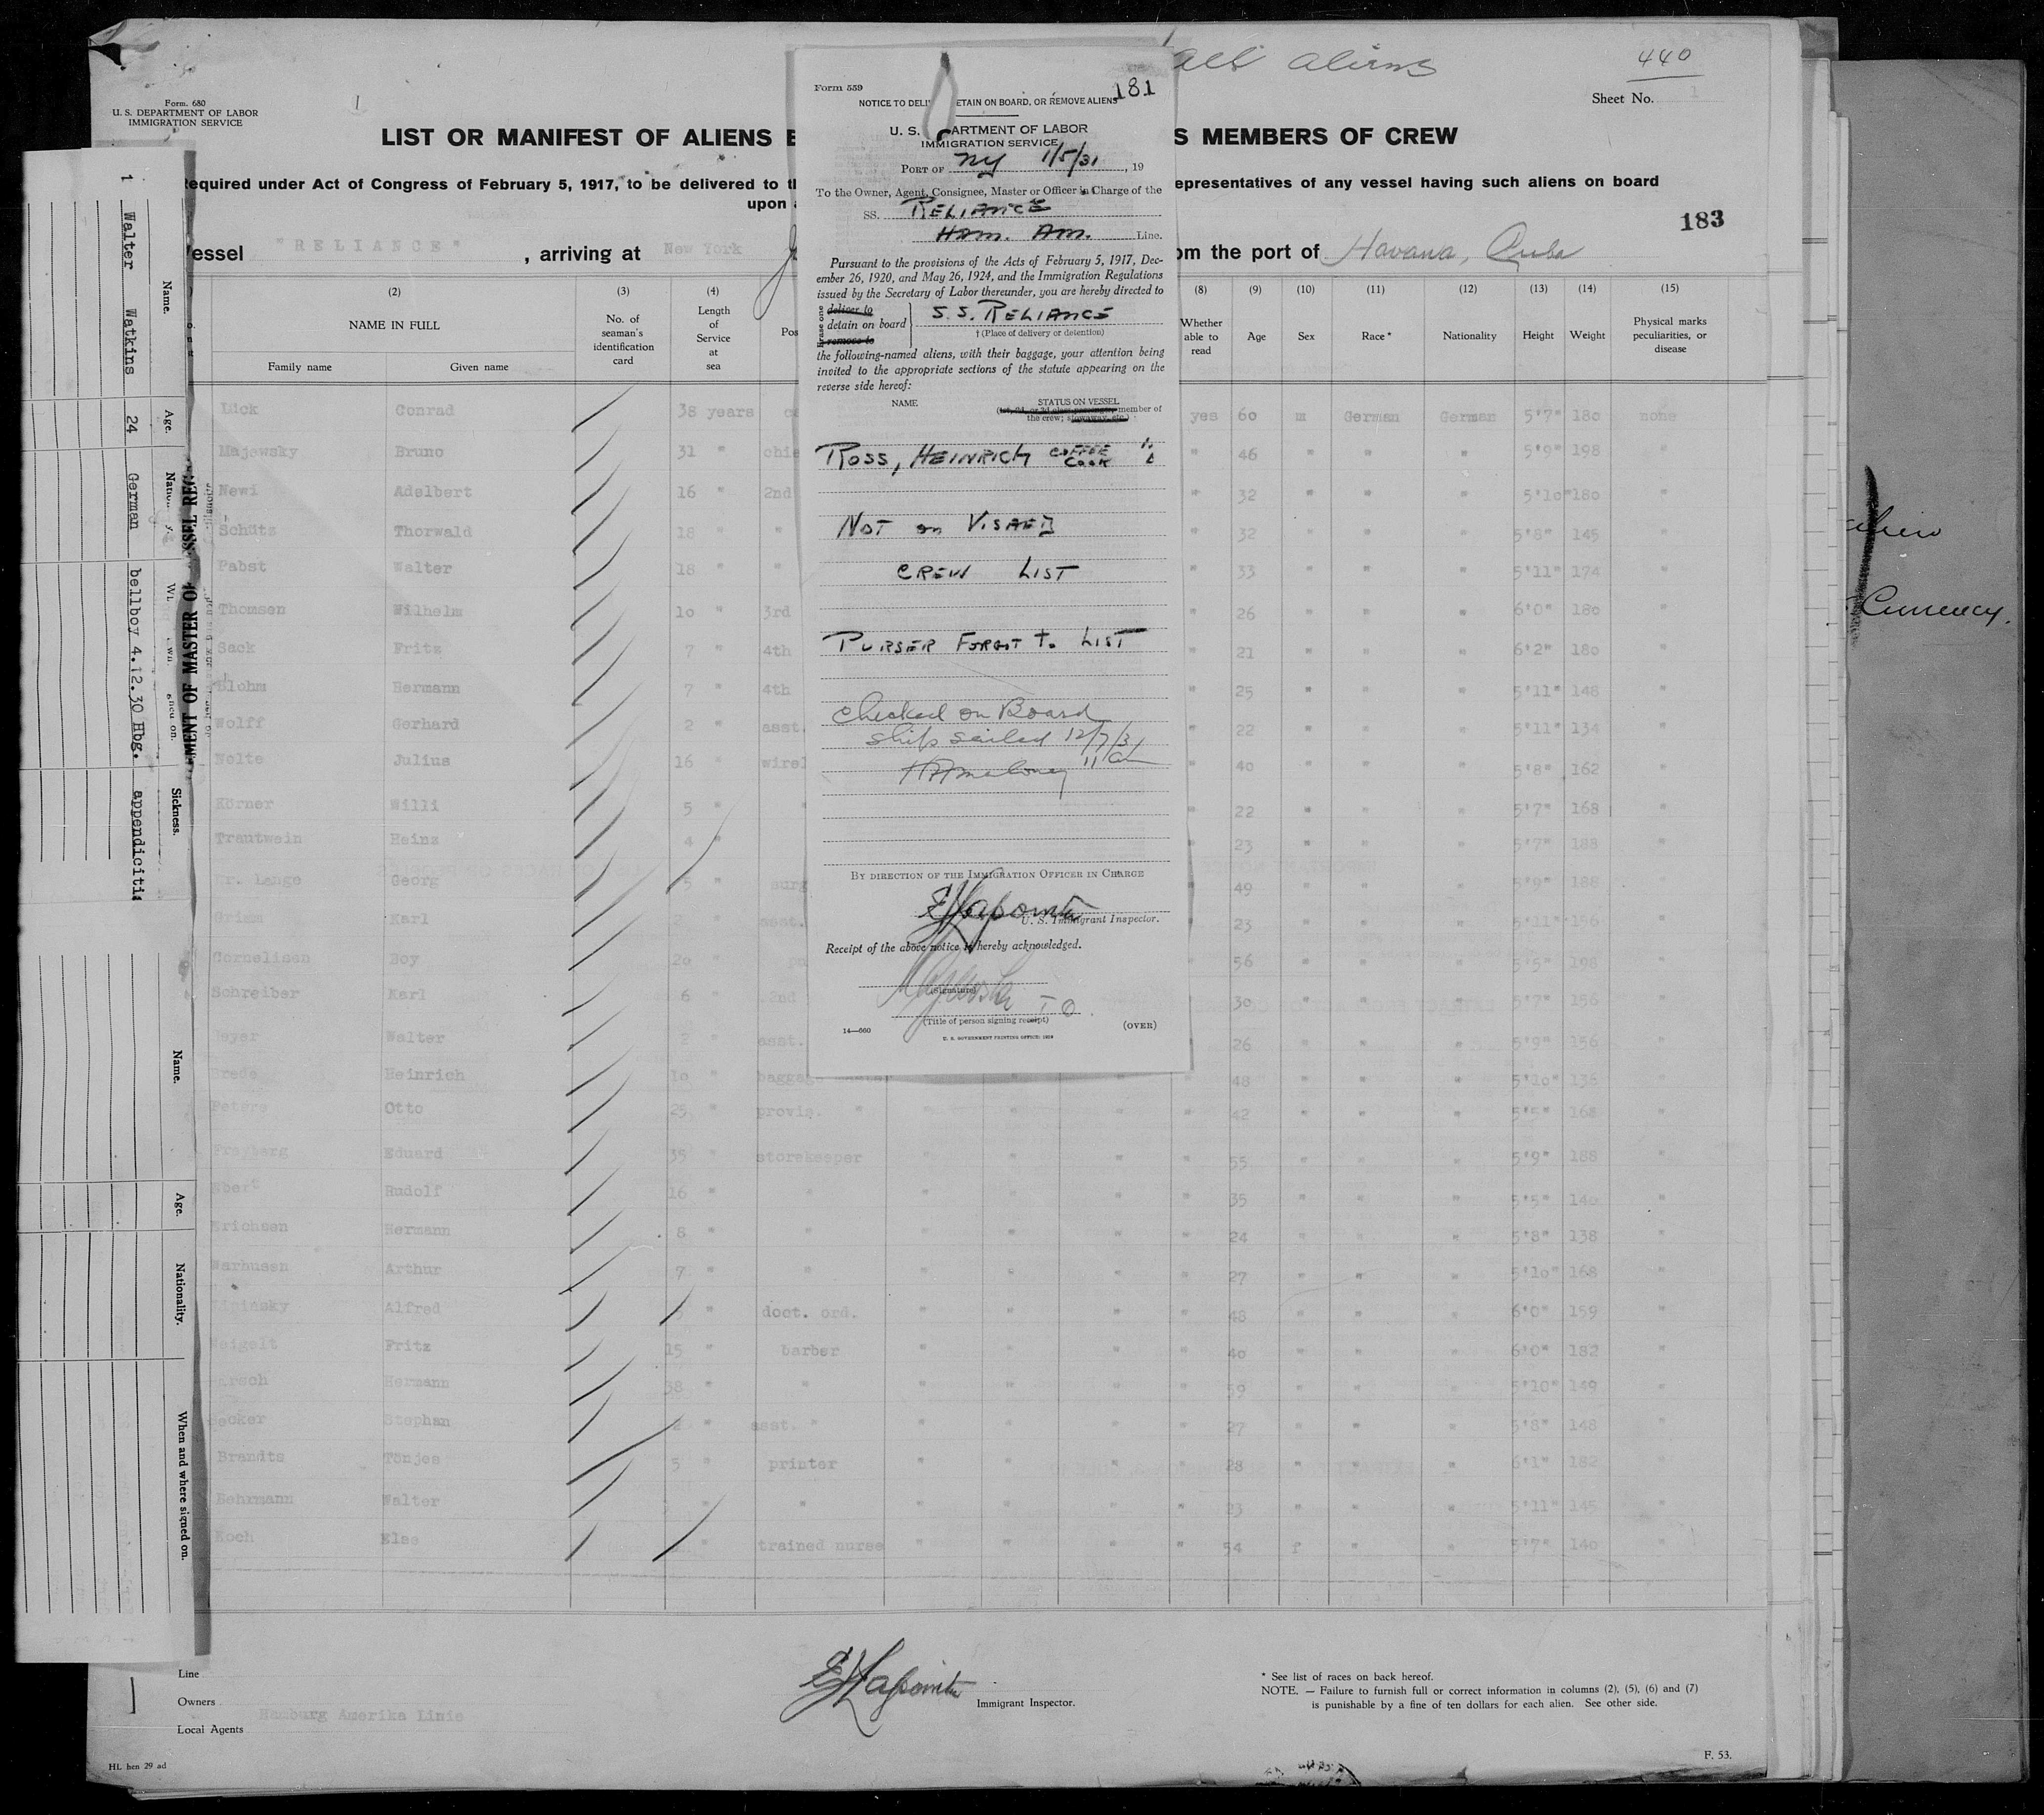 all aliens
440
Form. 680
U. S. DEPARTMENT OF LABOR
IMMIGRATION SERVICE
Sheet No. 1
LIST OR MANIFEST OF ALIENS E
S MEMBERS OF CREW
Required under Act of Congress of February 5, 1917, to be delivered to th
epresentatives of any vessel having such aliens on board
upon a
183
Vessel "RELIANCE" , arriving at New York
om the port of Havana, Cuba
(2) (3) (4) (8) (9) (10) (11) (12) (13) (14) (15)
NAME IN FULL
Family name Given name
No. of seaman's identification card
Length of Service at sea
Pos
Whether able to read
Age Sex Race* Nationality Height Weight
Physical marks peculiarities, or disease
Lick Conrad 38 years yes 60 m German German 5'7" 180 none
Majewsky Bruno 31 " chie " 46 " " " 5'9" 198 "
Newi Adelbert 16 " 2nd " 32 " " " 5'10" 180 "
Schütz Thorwald 18 " " " 32 " " " 5'8" 145 "
Pabst Walter 18 " " " 33 " " " 5'11" 174 "
Thomsen Wilhelm 10 " 3rd " 26 " " " 6'0" 180 "
Sack Fritz 7 " 4th " 21 " " " 6'2" 180 "
Blohm Hermann 7 " 4th " 25 " " " 5'11" 148 "
Wolff Gerhard 2 " asst. " 22 " " " 5'11" 134 "
Nolte Julius 16 " wirel " 40 " " " 5'8" 162 "
Körner Willi 5 " " " 22 " " " 5'7" 168 "
Trautwein Heinz 4 " " 23 " " " 5'7" 188 "
Dr. Lange Georg 5 " surg " 49 " " " 5'9" 188 "
Grimm Karl 2 " asst. " 23 " " " 5'11" 196 "
Cornelisen Boy 20 " pu " 56 " " " 5'5" 198 "
Schreiber Karl 6 " 2nd " 30 " " " 5'7" 156 "
Meyer Walter 2 " asst. " 26 " " " 5'9" 156 "
Brede Heinrich 10 " baggage " " " " 48 " " " 5'10" 136 "
Peters Otto 25 " provis. " " " " " 42 " " " 5'5" 168 "
Freyberg Eduard 35 " storekeeper " " " " 55 " " " 5'9" 188 "
Ebert Rudolf 16 " " " " " " 35 " " " 5'5" 140 "
Erichsen Hermann 8 " " " " " " 24 " " " 5'8" 138 "
Warhusen Arthur 7 " " " " " " 27 " " " 5'10" 168 "
Lipinsky Alfred " doct. ord. " " " " 48 " " " 6'0" 159 "
Weigelt Fritz 15 " barber " " " " 40 " " " 6'0" 182 "
Hermann 38 " " " " " " 59 " " " 5'10" 149 "
Becker Stephan " asst. " " " " " 27 " " " 5'8" 148 "
Brandts Tönjes 5 " printer " " " " 28 " " " 6'1" 182 "
Behrmann Walter " " " " " " 23 " " " 5'11" 145 "
Koch Else " trained nurse " " " " 54 f " " 5'7" 140 "
Line
Owners
Hamburg Amerika Linie
Local Agents
Immigrant Inspector.
* See list of races on back hereof.
NOTE. — Failure to furnish full or correct information in columns (2), (5), (6) and (7)
is punishable by a fine of ten dollars for each alien. See other side.
HL hen 29 ad
F. 53.
Form 559
181
NOTICE TO DELI ETAIN ON BOARD, OR REMOVE ALIENS
U. S. ARTMENT OF LABOR
IMMIGRATION SERVICE
PORT OF NY 1/5/31, 19
To the Owner, Agent, Consignee, Master or Officer in Charge of the
SS. RELIANCE
HAM. AM. Line.
Pursuant to the provisions of the Acts of February 5, 1917, Dec-
ember 26, 1920, and May 26, 1924, and the Immigration Regulations
issued by the Secretary of Labor thereunder, you are hereby directed to
Erase one
deliver to
detain on board
remove to
S.S. RELIANCE
† (Place of delivery or detention)
the following-named aliens, with their baggage, your attention being
invited to the appropriate sections of the statute appearing on the
reverse side hereof:
NAME STATUS ON VESSEL
(1st, 2d, or 3d class passenger, member of
the crew; stowaway, etc.)
ROSS, HEINRICH COFFEE COOK
NOT on VISAED
CREW LIST
PURSER FORGOT TO LIST
Checked on Board
Ship sailed 12/7/31
BY DIRECTION OF THE IMMIGRATION OFFICER IN CHARGE
U. S. Immigrant Inspector.
Receipt of the above notice is hereby acknowledged.
(Signature)
(Title of person signing receipt)
14—660
(OVER)
U. S. GOVERNMENT PRINTING OFFICE: 1929
1 Walter Watkins 24 German bellboy 4.12.30 Hbg. appendicitis
Name. Age. Sickness.
SSEL REG OR MASTER OF MENT
Name. Age. Nationality. When and where signed on.
Currency.